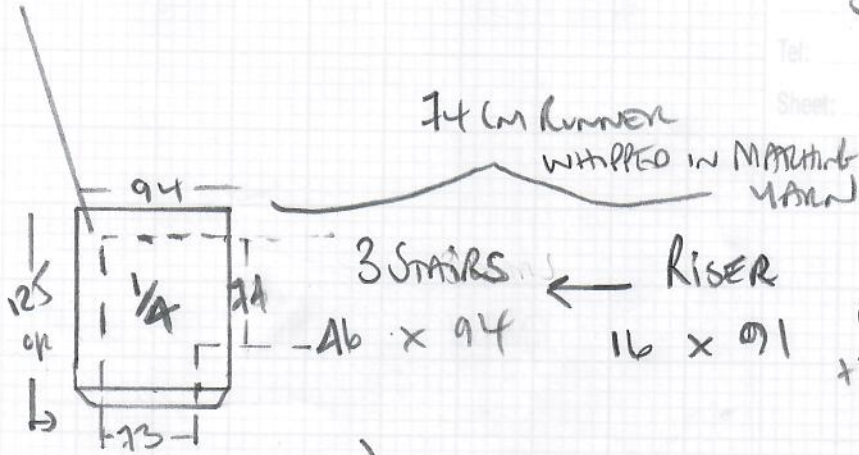 Tel:
Sheet:
74 CM RUNNER
WHIPPED IN MATCHING
YARN
94
125
1/4
74
3 STAIRS ← RISER
46 × 94
16 × 91
73